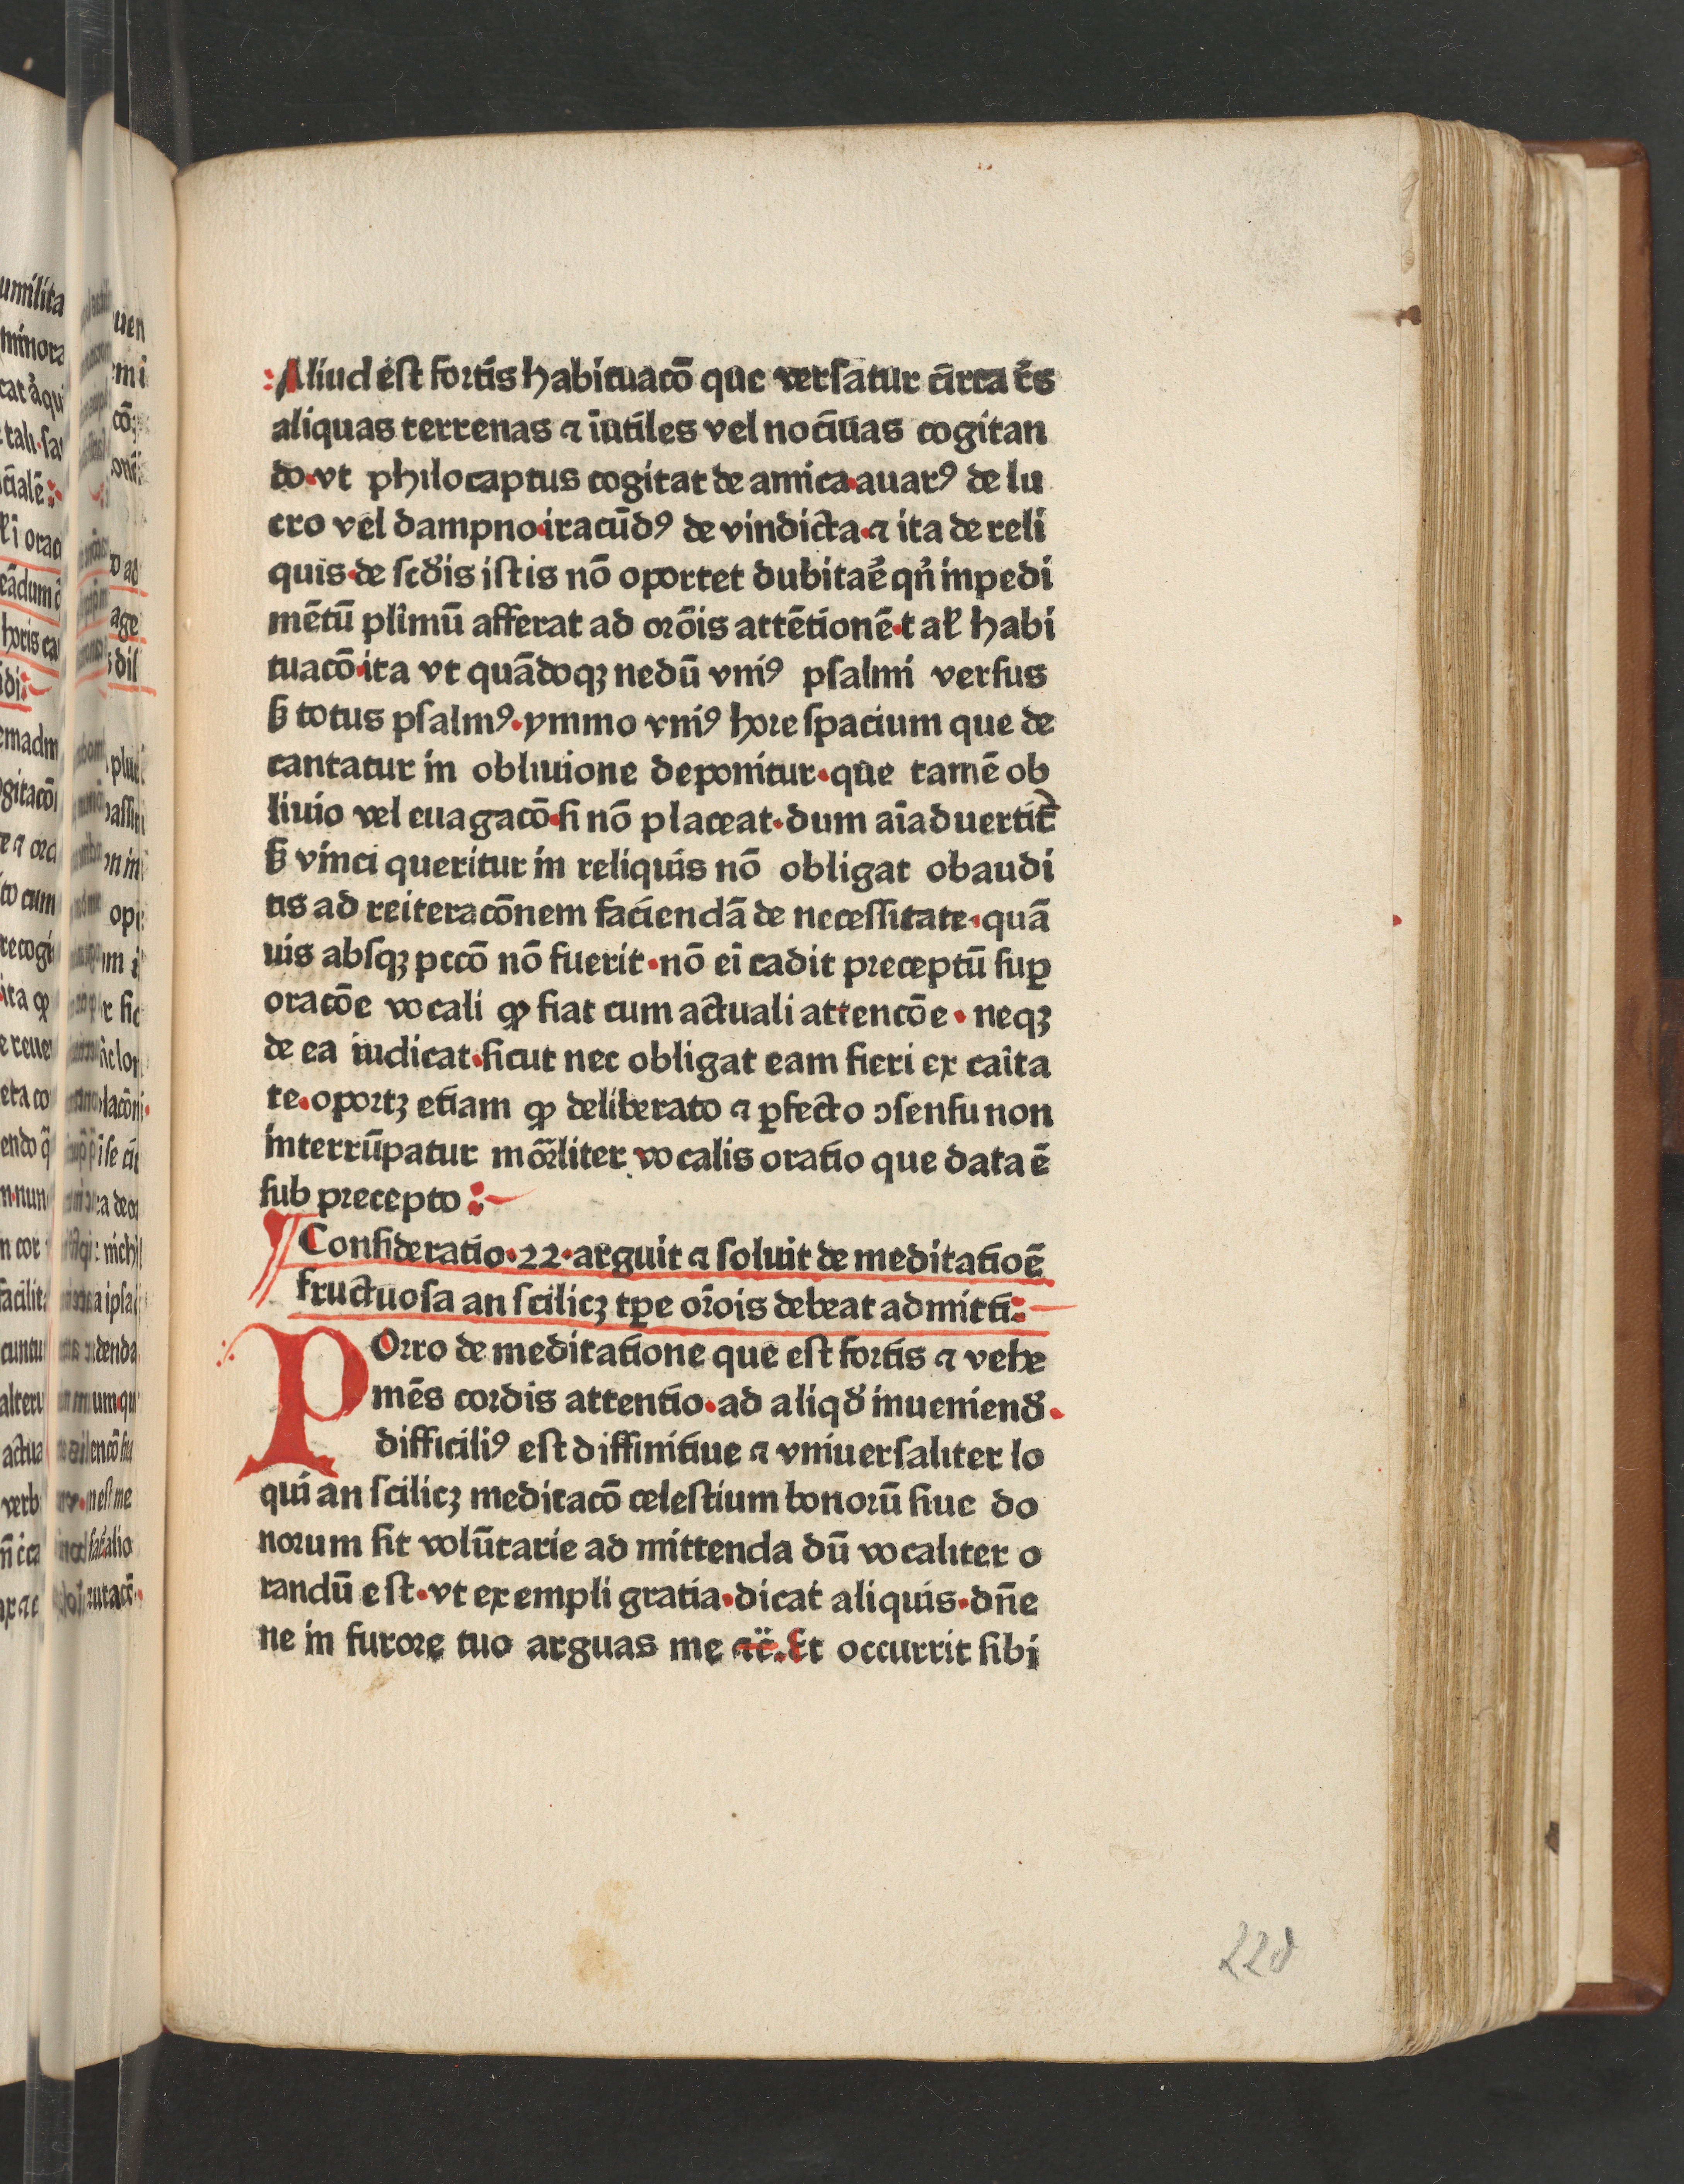 Aliud est fortis habituacō que versatur circa r̄es
aliquas terrenas ⁊ iūtiles vel nociuas cogitan
do·vt philocaptus cogitat de amica·auarꝰ de lu
cro vel dampno·iracūdꝰ de vindicta·⁊ ita de reli
quis·de scd̓is istis nō oportet dubitar̄e qn̓ inpedi
mētū plīmū afferat ad or̄ois attētionē·t al̓ habi
tuacō·ita vt quādoqꝫ nedū vniꝰ psalmi versus
ß totus psalmꝰ·ymmo vniꝰ hore spacium que de
cantatur in obliuione deponitur·que tamē ob
liuio vel euagacō·si nō placeat·dum aīaduertit᷑
ß vinci queritur in reliquis nō obligat obaudi
tis ad reiteracōnem faciendā de necessitate·quā
uis absqꝫ pccō nō fuerit·nō ei cadit preceptū suꝑ
oracōe vocali ꝙ fiat cum actuali attencōe·neqꝫ
de ea iudicat·sicut nec obligat eam fieri ex caīta
te·oportꝫ etiam ꝙ deliberato ⁊ ꝑfecto ↄsensu non
interrūpatur mōrliter vocalis oratio que data ē
sub precepto:
Consideratio·22·arguit ⁊ soluit de meditatioē
fructuosa an scilicꝫ tꝑe or̄ois debeat admitti:
POrro de meditatione que est fortis ⁊ vehe
mēs cordis attentio·ad aliqd̓ inueniend̓·
difficiliꝰ est diffinitiue ⁊ vniuersaliter lo
qui an scilicꝫ meditacō celestium bonorū siue do
norum sit volūtarie admittenda dū vocaliter o
randū est·vt exempli gratia·dicat aliquis·dn̄e
ne in furore tuo arguas me ⁊c̄. Et occurrit sibi
228